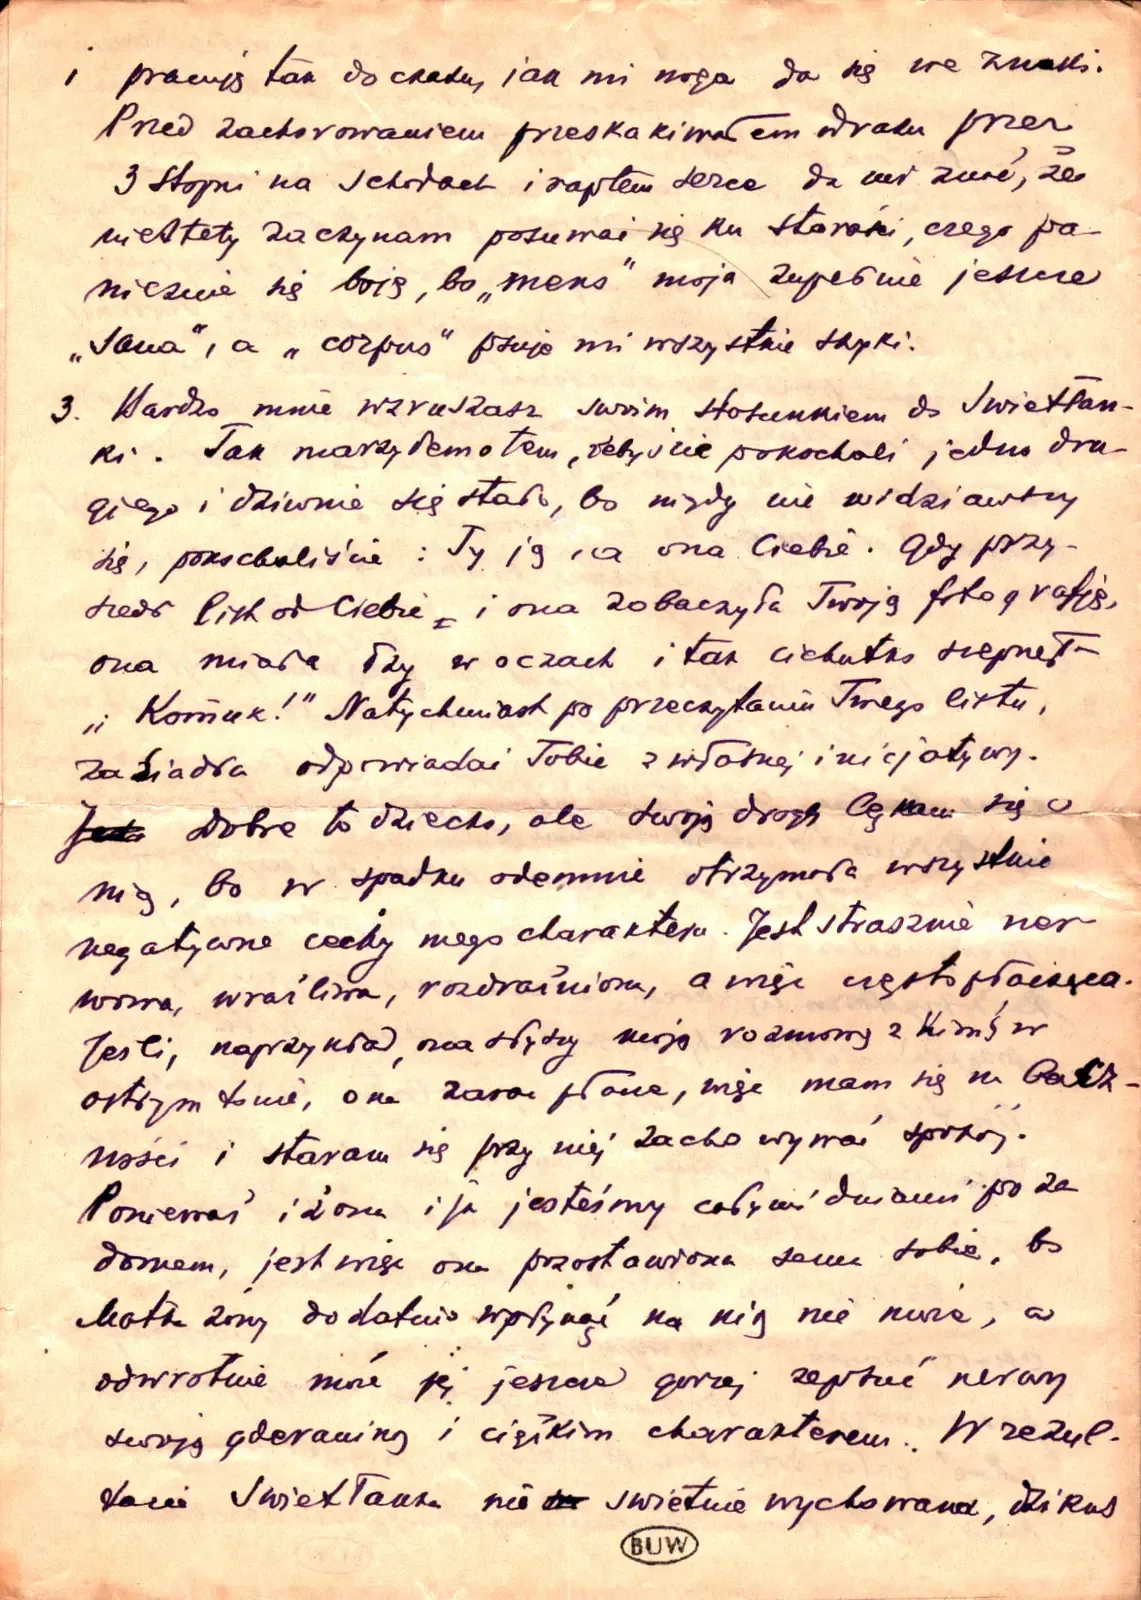 i pracuję tak do czasu, jak mi noga da się we znaki.
Przed zachorowaniem przeskakiwałem odrazu przez
3 stopni na schodach i raptem serce da mi znać, że
niestety zaczynam posuwać się ku starości, czego pa-
nicznie się boję, bo „mens" moja zupełnie jeszcze
„sana", a „corpus" psuje mi wszystkie szyki.
3. Bardzo mnie wzruszasz swoim stosunkiem do Swietłan-
ki. Tak marzyłem o tem, żebyście pokochali jedno dru-
giego i dziwnie się stało, bo nigdy nie widziawszy
się, pokochaliście: Ty ją, a ona Ciebie. Gdy przy-
szedł list od Ciebie i ona zobaczyła Twoją fotografję,
ona miała łzy w oczach i tak cichutko szepnęła
„Komuk!" Natychmiast po przeczytaniu Twego listu,
zasiadła odpowiadać Tobie z własnej inicjatywy.
Dobre to dziecko, ale swoją drogą lękam się o
nią, bo w spadku odemnie otrzymała wszystkie
negatywne cechy mego charakteru. Jest strasznie ner-
wowa, wraźliwa, rozdrażniona, a więc często płacząca.
Jeśli, naprzykład, ona słyszy moją rozmowę z kimś w
ostrym tonie, ona zaraz płacze, więc mam się na bacz-
ności i staram się przy niej zachowywać spokój.
Ponieważ i żona i ja jesteśmy całymi dniami poza
domem, jest więc ona pozostawiona sama sobie, bo
Matka żony dodatnio wpłynąć na nią nie może, a
odwrotnie może jej jeszcze gorzej zepsuć nerwy
swoją gderaniną i ciężkim charakterem. W rezul-
tacie Swietłanka nie swietnie wychowana, dzikus
BUW